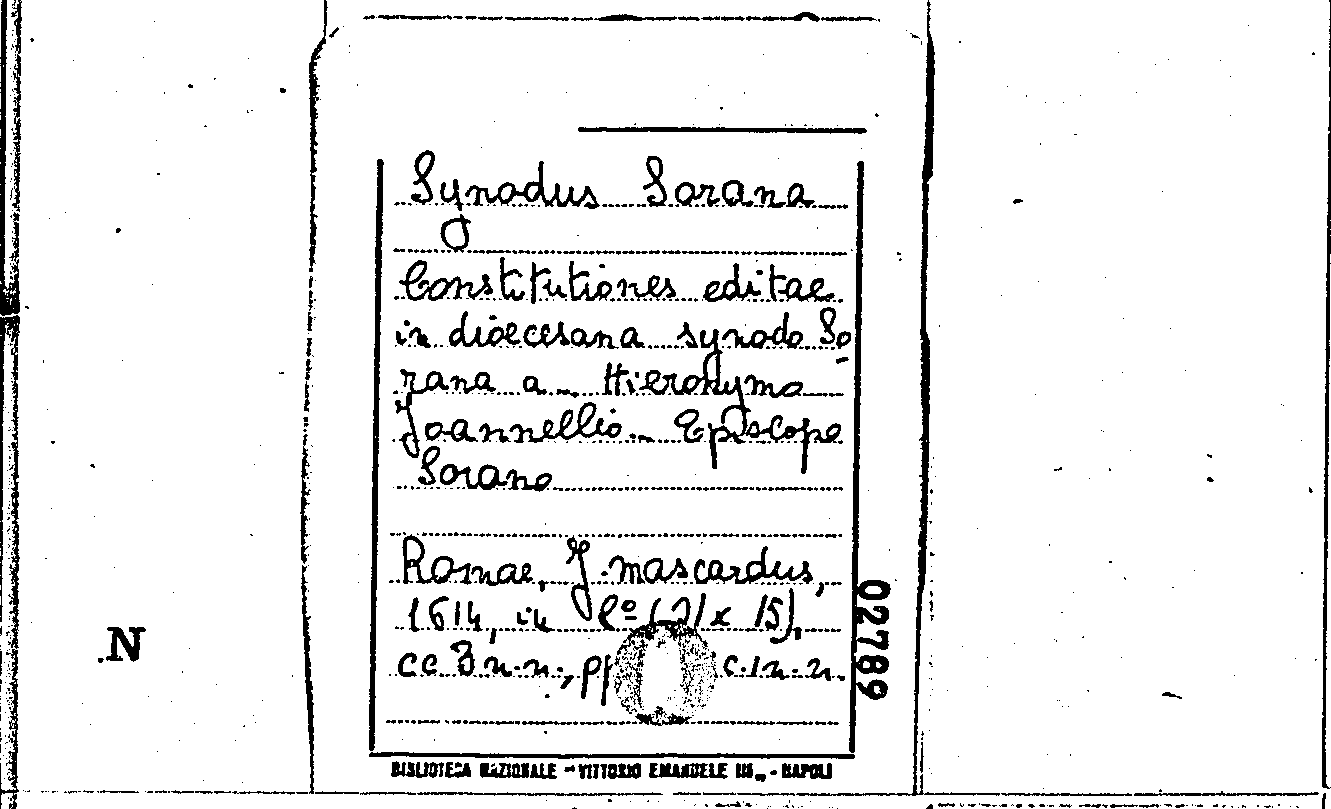 Synodus Sorana
Constitutiones editae
in dioecesana synodo So
rana a... Hieronymo
Joannellio... Episcopo
Sorano
Romae, J. mascardus,
1614, in 8º (21 x 15),
cc 3 n.n., pp c. 1 n.n.
02789
N
BIBLIOTECA NAZIONALE - VITTORIO EMANUELE III„ - NAPOLI